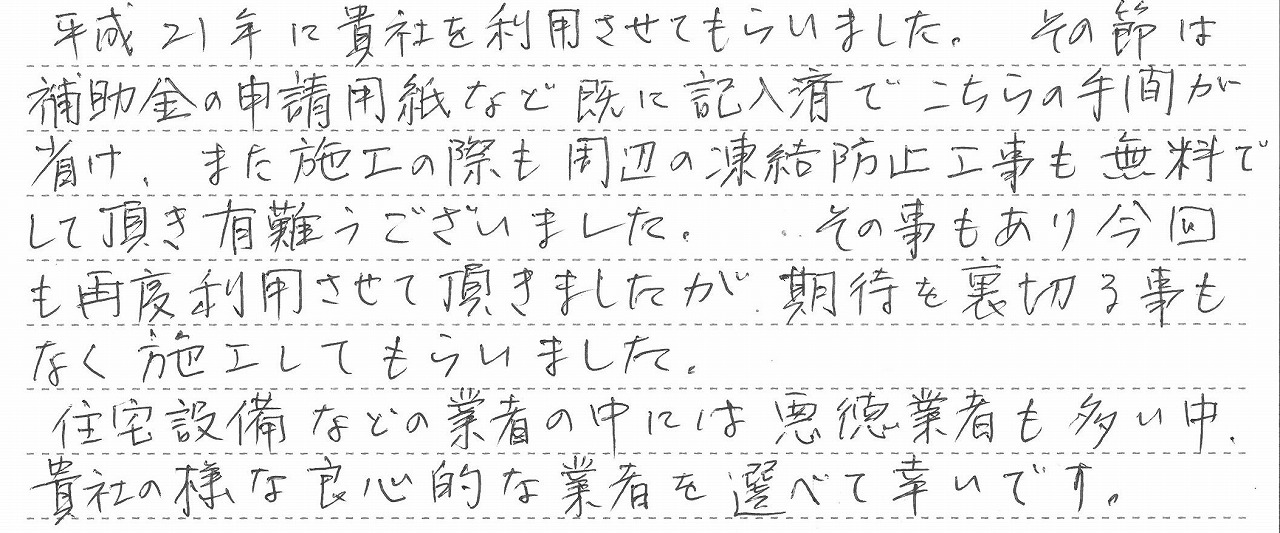 平成21年に貴社を利用させてもらいました。 その節は
補助金の申請用紙など既に記入済でこちらの手間が
省け、また施工の際も周辺の凍結防止工事も無料で
して頂き有難うございました。 その事もあり今回
も再度利用させて頂きましたが、期待を裏切る事も
なく施工してもらいました。
住宅設備などの業者の中には悪徳業者も多い中、
貴社の様な良心的な業者を選べて幸いです。